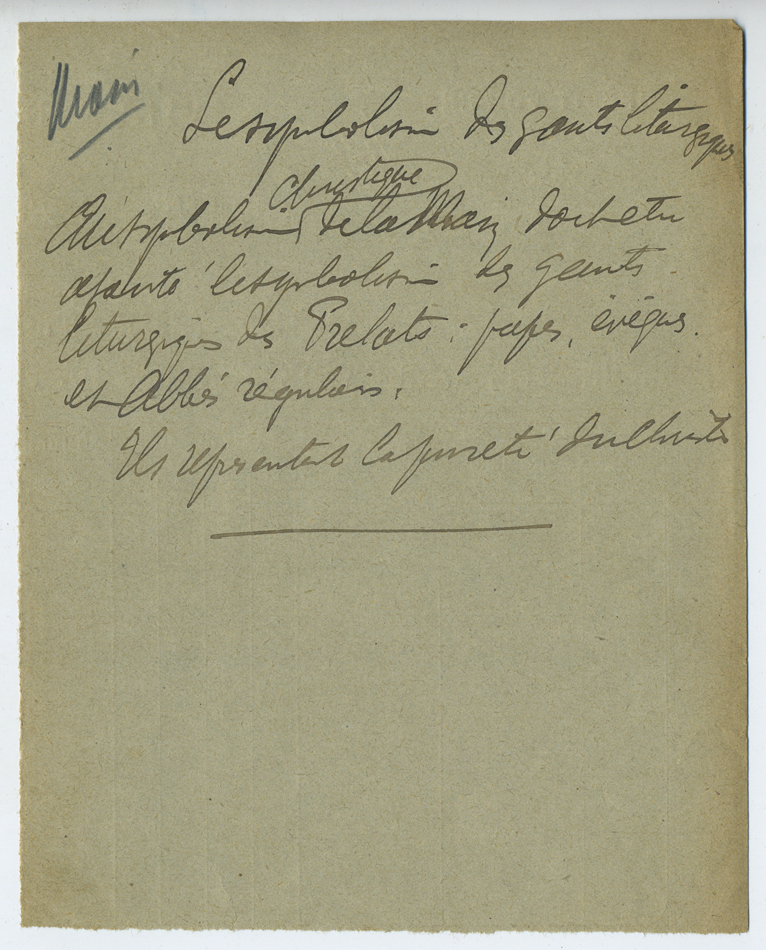 Main
Le symbolisme des gants liturgiques
christique
Au symbolisme de la Main doit être
ajouté le symbolisme des gants
liturgiques des Prélats : papes, évêques
et Abbés réguliers.
Ils représentent la pureté du Christ